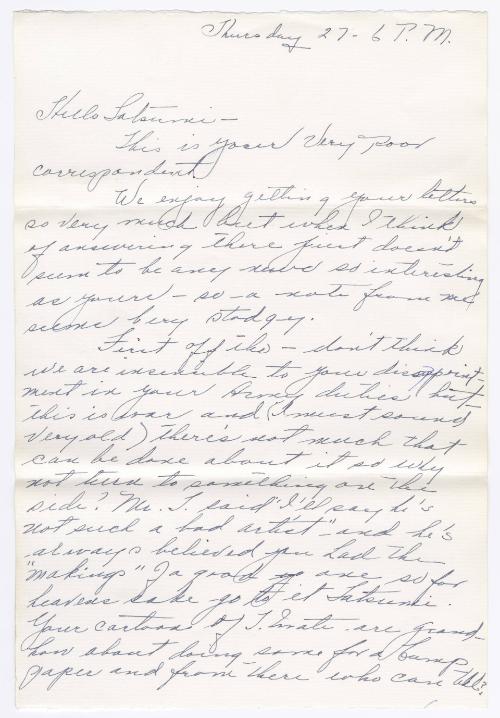 Thursday 27 - 6 P.M.
Hello Satsumi -
This is your very poor
correspondent
We enjoy getting your letters
so very much but when I think
of answering there just doesn't
seem to be any news so interesting
as yours - so - a note from me
seems very stodgy.
First off tho - don't think
we are insensible to your disappoint-
ment in your Army duties but
this is war and (I must sound
very old) there's not much that
can be done about it so why
not turn to something on the
side? Mr. T. said "I'll say he's
not such a bad artist" and he's
always believed you had the
"makings" of a good one so for
heavens sake go to it Satsumi.
Your cartoons of are grand -
how about doing some for a Camp
paper and from there who can tell?